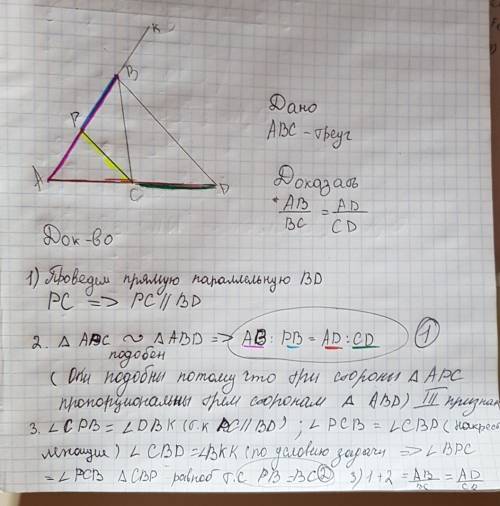 K
B
P
A
C
D
Дано
ABC - треуг
Доказать
* AB/BC = AD/CD
Док-во
1) Проведем прямую параллельную BD
PC => PC // BD
2. △ APC ~ △ ABD => AB : PB = AD : CD ①
подобен
(Они подобны потому что три стороны △ APC
пропорциональны трём сторонам △ ABD) III признак
3. ∠CPB = ∠DBK (т.к PC//BD) ; ∠PCB = ∠CBD (накрест
лежащие) ∠CBD = ∠BKK (по условию задачи => ∠BPC
= ∠PCB △ CBP равноб т.с PB = BC ② 3) 1+2 = AB/BC = AD/CD